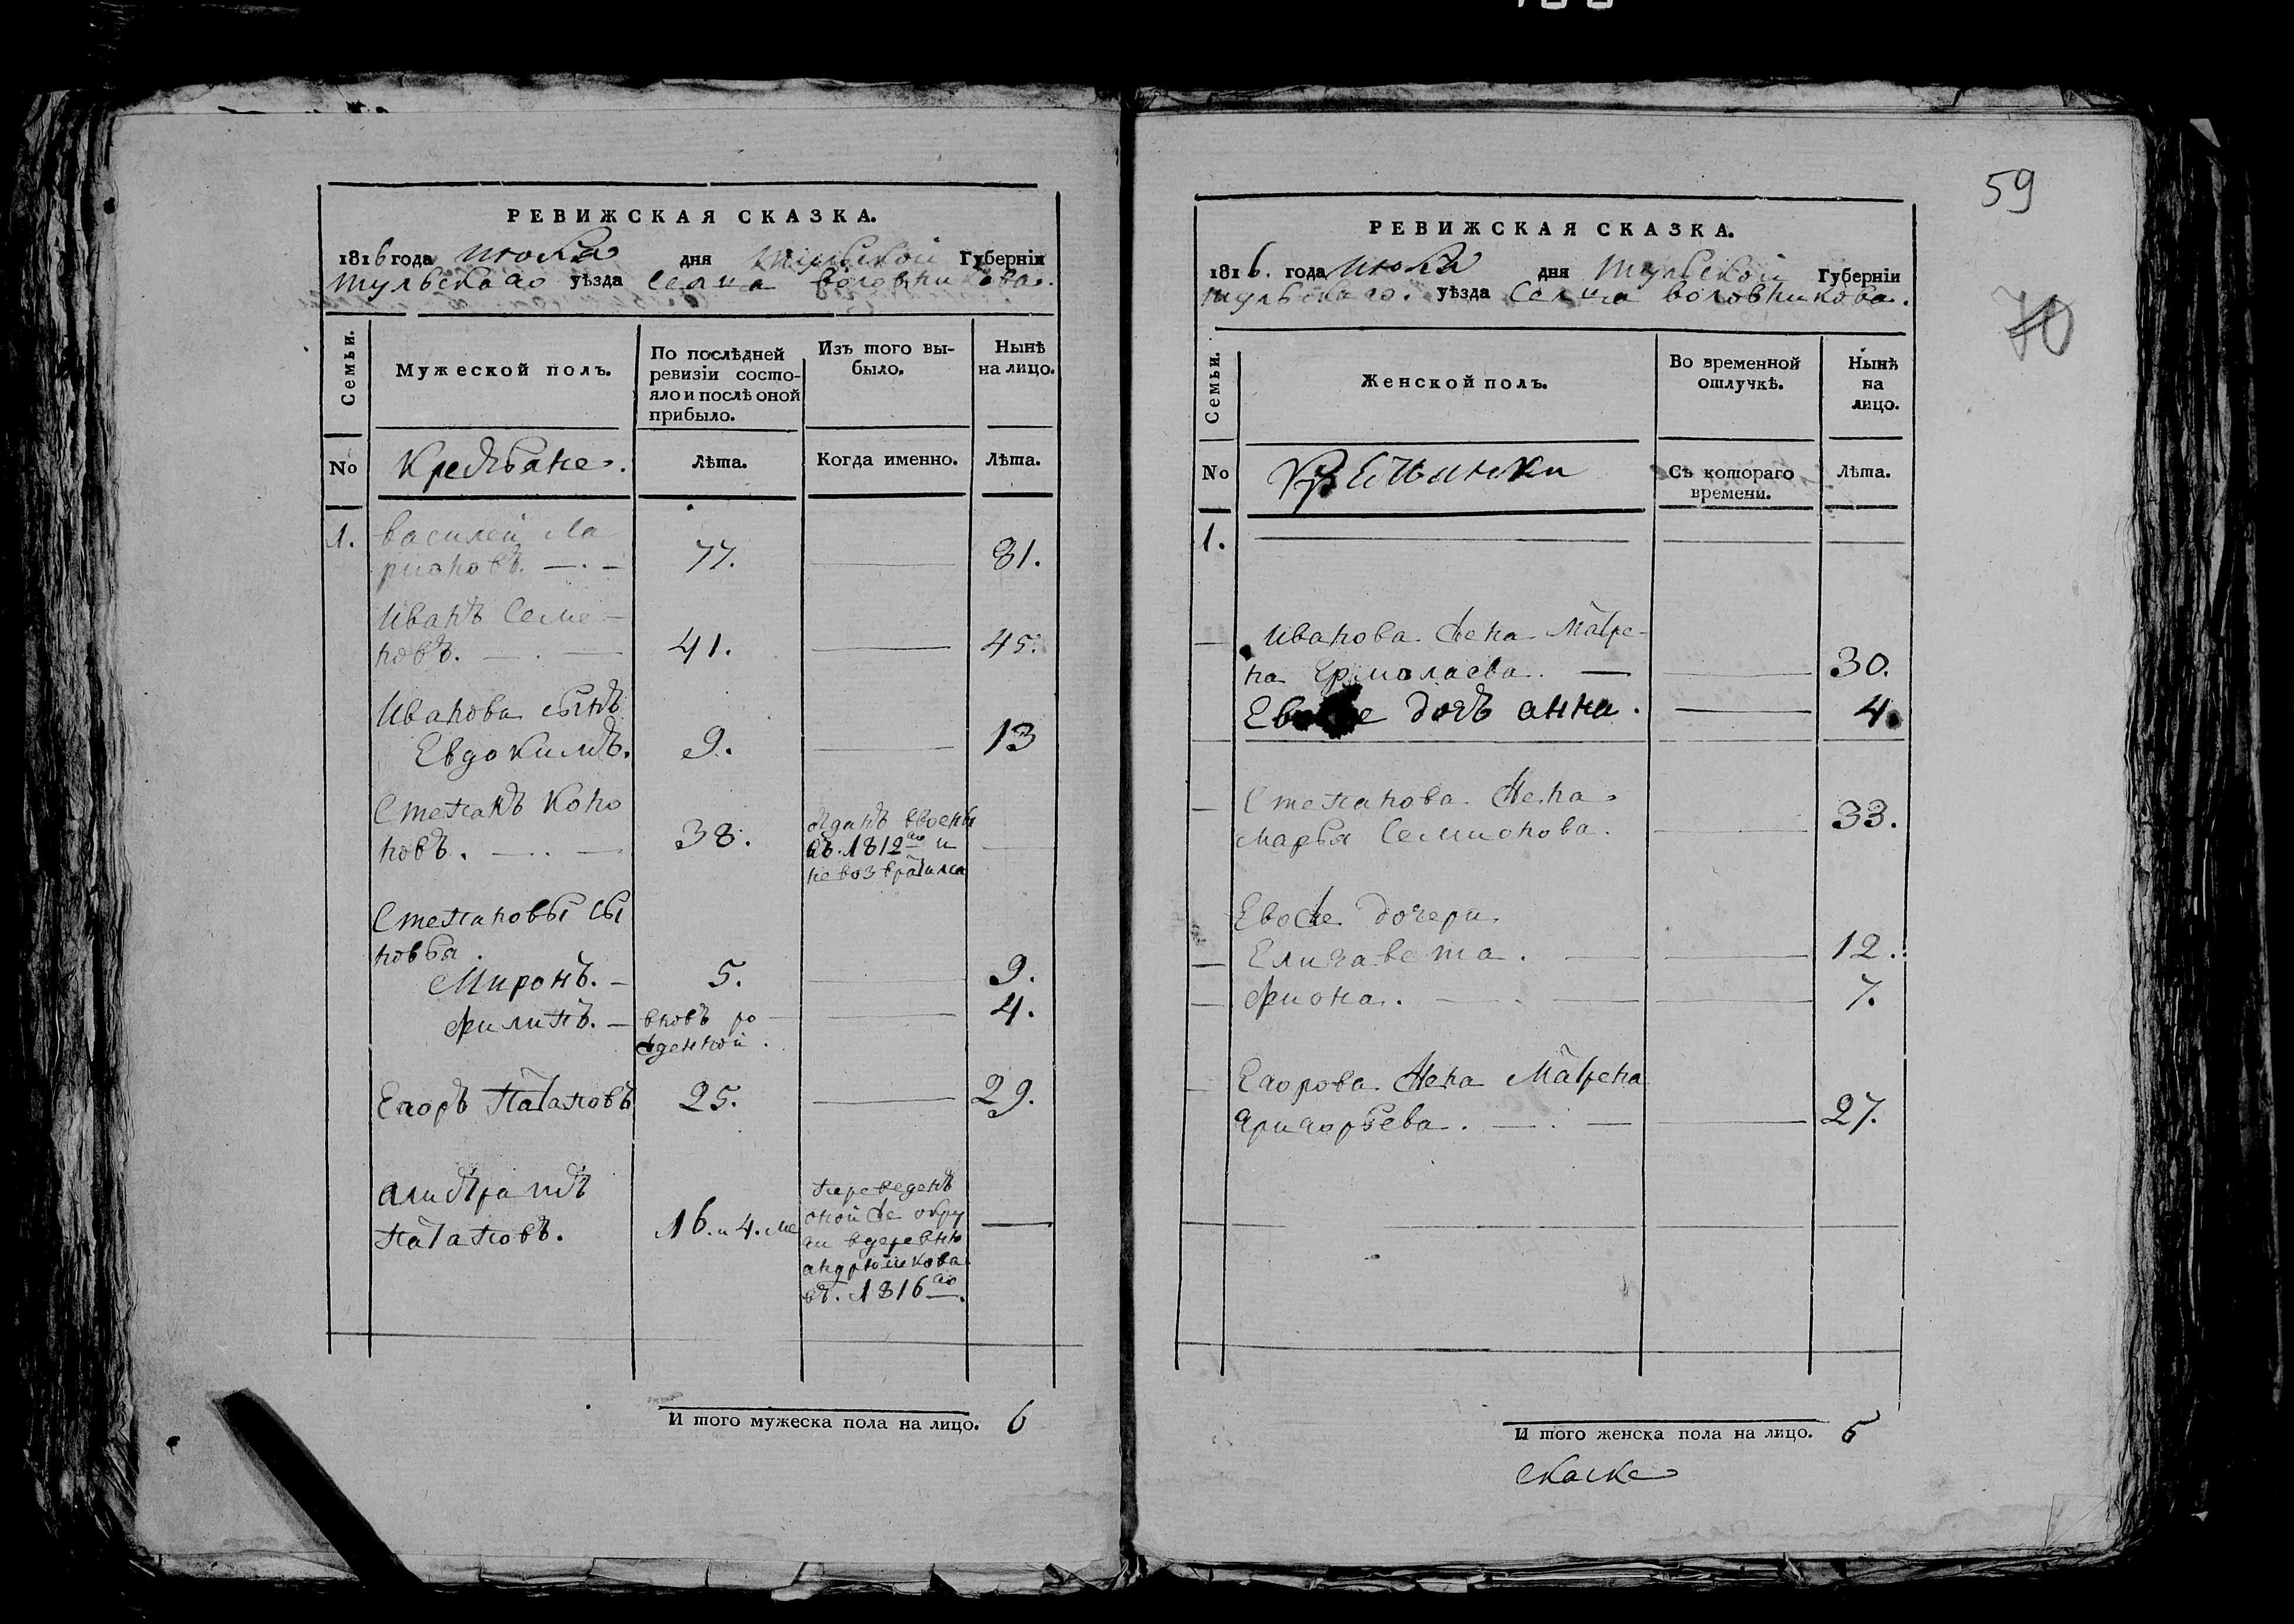 РЕВИЖСКАЯ СКАЗКА.
1816 года июля дня Тульской Губерніи
тульскаго уѣзда Селца воловникова.
Семьи.
Мужеской полъ.
По послѣдней ревизіи состо-
яло и послѣ оной прибыло.
Изъ того вы-
было.
Нынѣ
на лицо.
No
Крестьяне.
Лѣта.
Когда именно.
Лѣта.
1. василей Ла
рионовъ. 77. 81.
Иванъ Семе-
новъ. 41. 45.
Иванова сынъ
Евдокимъ. 9. 13
Степанъ Коно
новъ. 38.
отданъ ввоены
въ. 1812го и
невозвратился
Степановы сы
новья.
Миронъ. 5. 9.
Филипъ. вновь ро
жденной. 4.
Егоръ Патаповъ 25. 29.
Патаповъ. 16. и 4. ме
переведенъ
оной же окру
ги вдеревню
андрюшкова
въ. 1816го.
И того мужеска пола на лицо. 6
59
70
РЕВИЖСКАЯ СКАЗКА.
1816. года июля дня Тульской Губерніи
тульскаго. уѣзда Селца воловникова.
Семьи.
Женской полъ.
Во временной
отлучкѣ.
Нынѣ
на
лицо.
No
Съ котораго
времени.
Лѣта.
1.
Иванова жена Матре-
на Ермолаева. 30.
дочь анна. 4.
Степанова жена
марья Семионова. 33.
Евоже дочери
Елизавета. 12.
Фиона. 7.
Егорова жена Матрена
григорьева. 27.
И того женска пола на лицо. 6
скаске